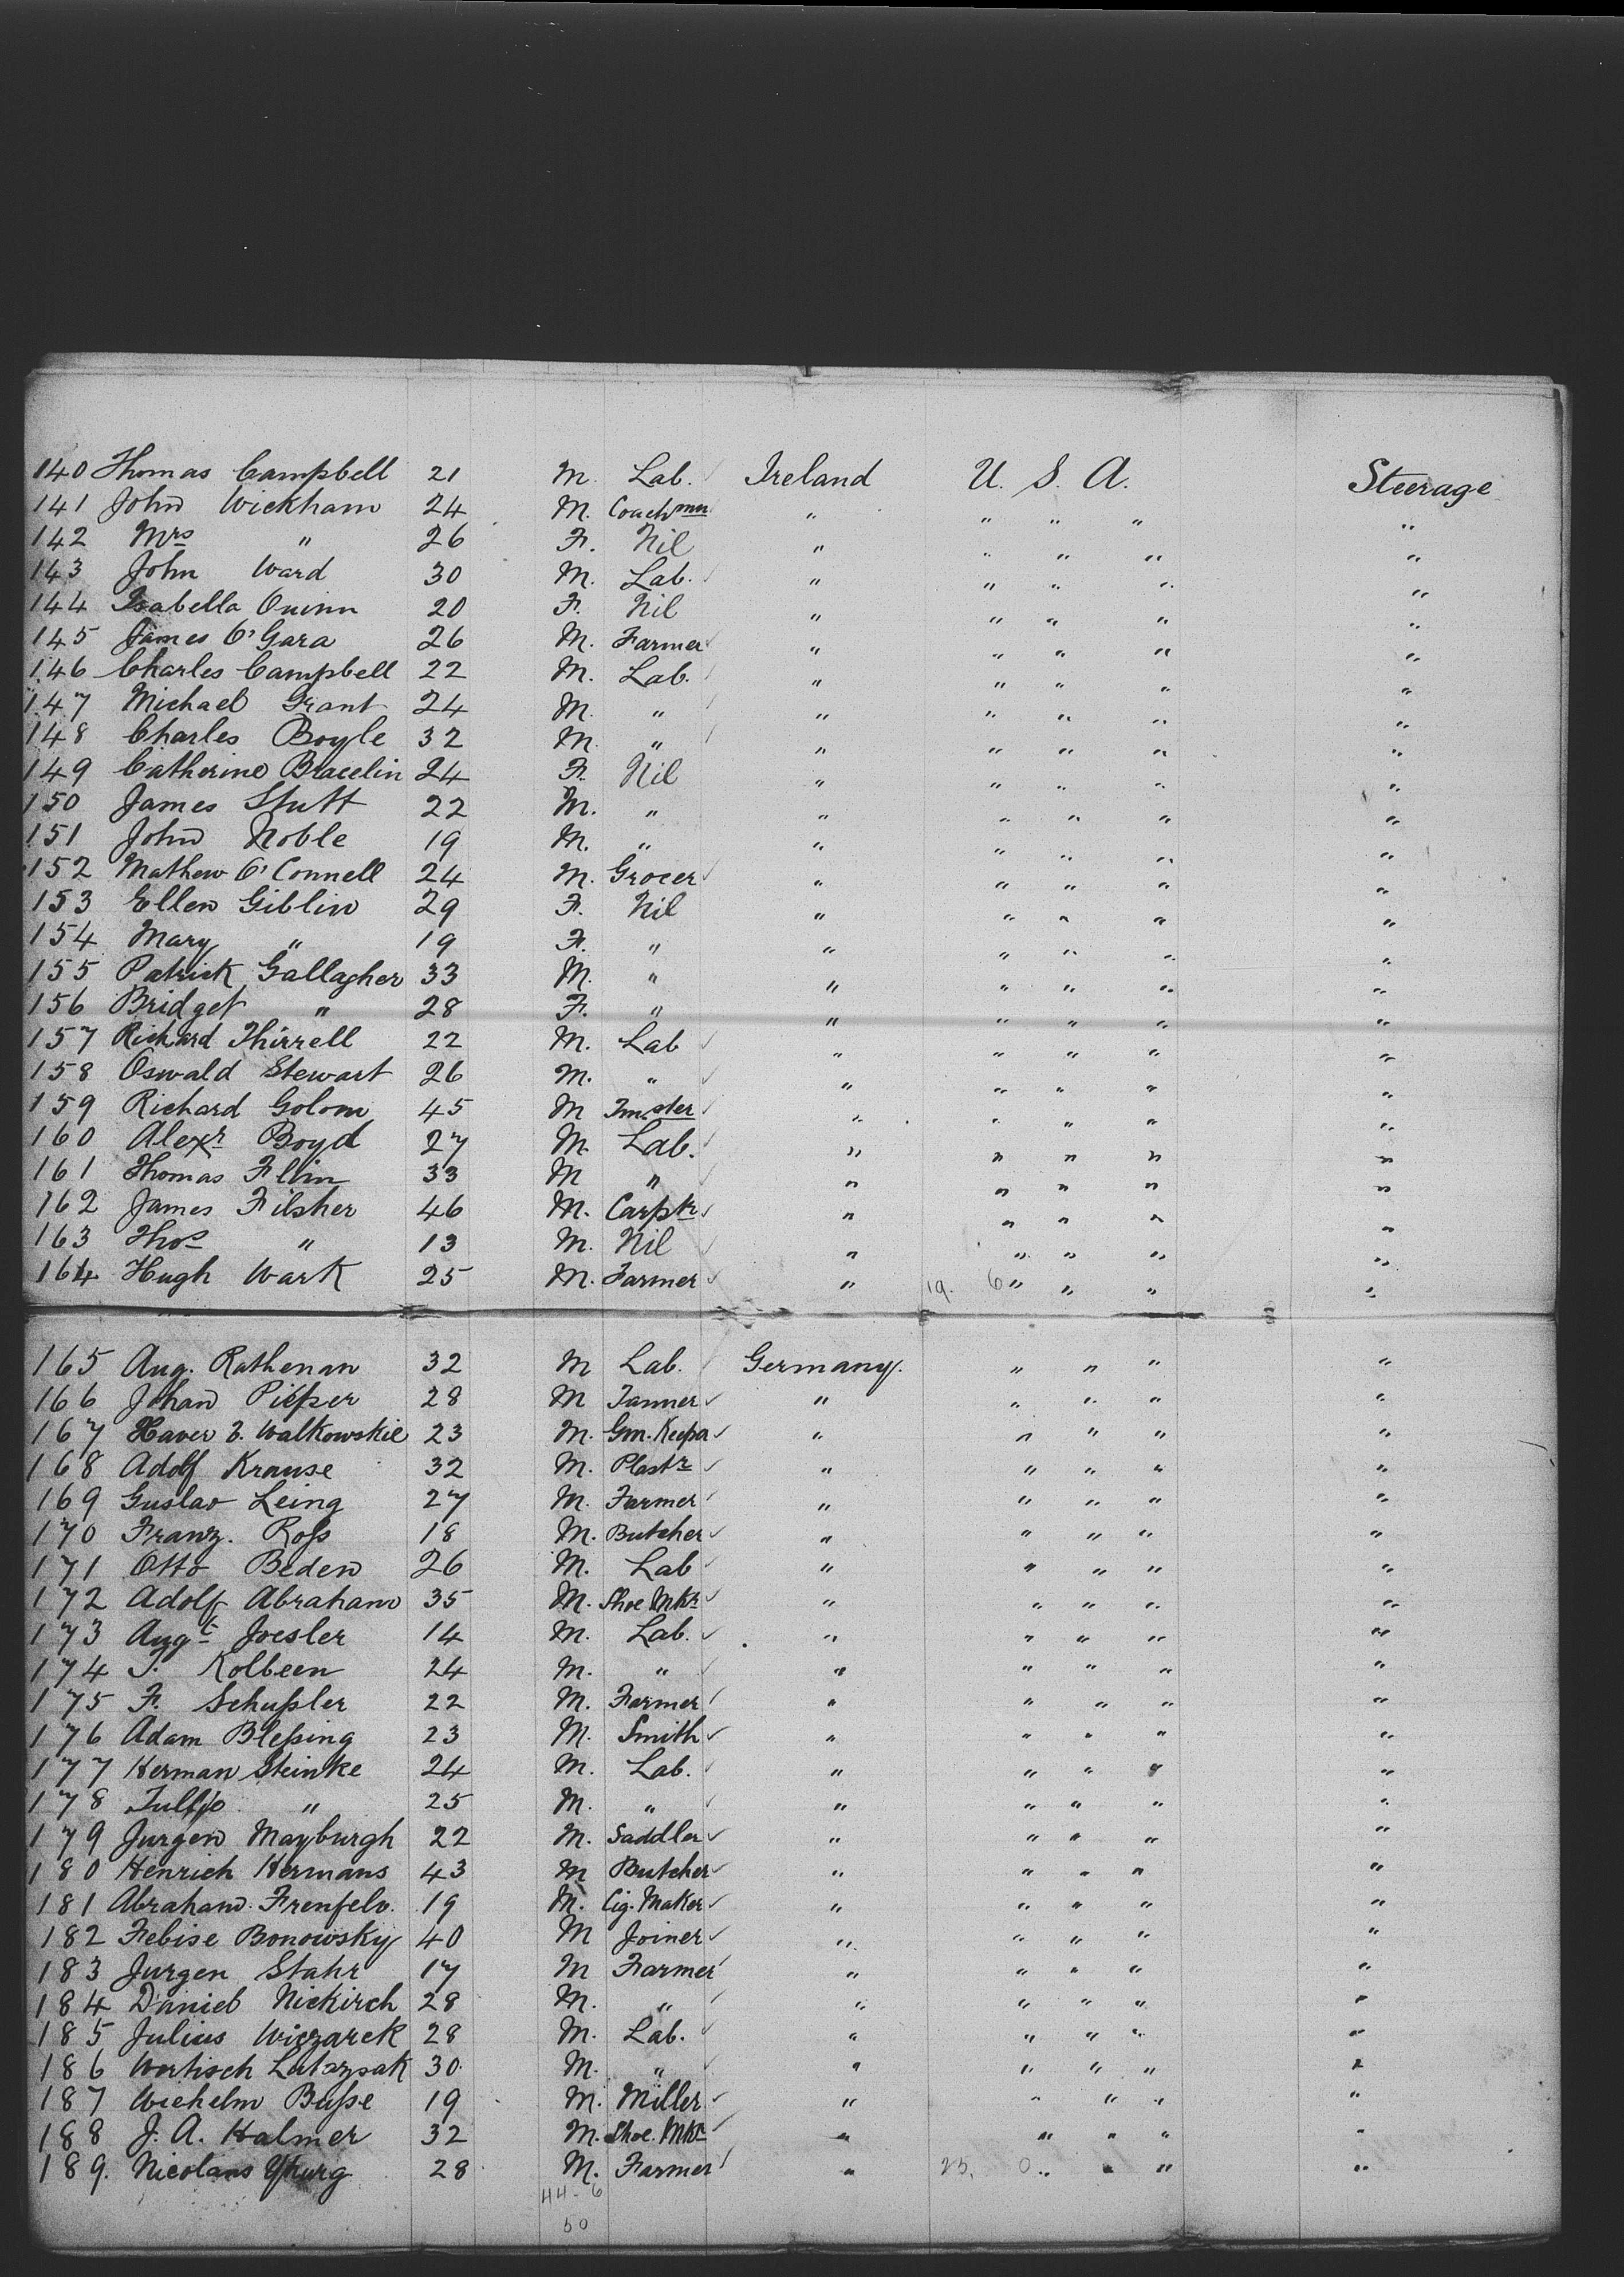 140 Thomas Campbell 21 M. Lab. Ireland U. S. A. Steerage
141 John Wickham 24 M. Coachmn " " " " "
142 Mrs " 26 F. Nil " " " " "
143 John Ward 30 M. Lab. " " " " "
144 Isabella Quinn 20 F. Nil " " " " "
145 James O'Gara 26 M. Farmer " " " " "
146 Charles Campbell 22 M. Lab. " " " " "
147 Michael Grant 24 M. " " " " " "
148 Charles Boyle 32 M. " " " " " "
149 Catherine Bracelin 24 F. Nil " " " " "
150 James Stutt 22 M. " " " " " "
151 John Noble 19 M. " " " " " "
152 Mathew O'Connell 24 M. Grocer " " " " "
153 Ellen Giblin 29 F. Nil " " " " "
154 Mary " 19 F. " " " " " "
155 Patrick Gallagher 33 M. " " " " " "
156 Bridget " 28 F. " " " " " "
157 Richard Thirrell 22 M. Lab " " " " "
158 Oswald Stewart 26 M. " " " " " "
159 Richard Golom 45 M " " " " "
160 Alexr Boyd 27 M. Lab. " " " " "
161 Thomas Flinn 33 M " " " " " "
162 James Filsher 46 M. Carptr " " " " "
163 Thos " 13 M. Nil " " " " "
164 Hugh Wark 25 M. Farmer " 19. 6 " " " "
165 Aug. Rathenan 32 M Lab. Germany. " " " "
166 Johan Pieper 28 M Tanner " " " " "
167 Xaver Z. Walkowskie 23 M. Gm. Keepa " " " " "
168 Adolf Krause 32 M. Plastr " " " " "
169 Guslav Leing 27 M. Farmer " " " " "
170 Franz. Roſs 18 M. Butcher " " " " "
171 Otto Beden 26 M. Lab " " " " "
172 Adolf Abraham 35 M. Shoe Mkr " " " " "
173 Augt Joesler 14 M. Lab. " " " " "
174 Kolbeen 24 M. " " " " " "
175 F. Schuſsler 22 M. Farmer " " " " "
176 Adam Bleſsing 23 M. Smith " " " " "
177 Herman Steinke 24 M. Lab. " " " " "
178 " 25 M. " " " " " "
179 Jurgen Mayburgh 22 M. Saddler " " " " "
180 Henrich Hermans 43 M Butcher " " " " "
181 Abraham 19 M. Cig. Maker " " " " "
182 Febise Bonowsky 40 M Joiner " " " " "
183 Jurgen Stahr 17 M Farmer " " " " "
184 Daniel Nickirch 28 M. " " " " " "
185 Julius Wiczarek 28 M. Lab. " " " " "
186 30 M. " " " " " "
187 Wiehelm Buſse 19 M. Miller " " " " "
188 J. A. Halmer 32 M. Shoe. Mkr " " " " "
189. Nicolaus 28 M. Farmer " 25. 0 " " " "
44-6
50